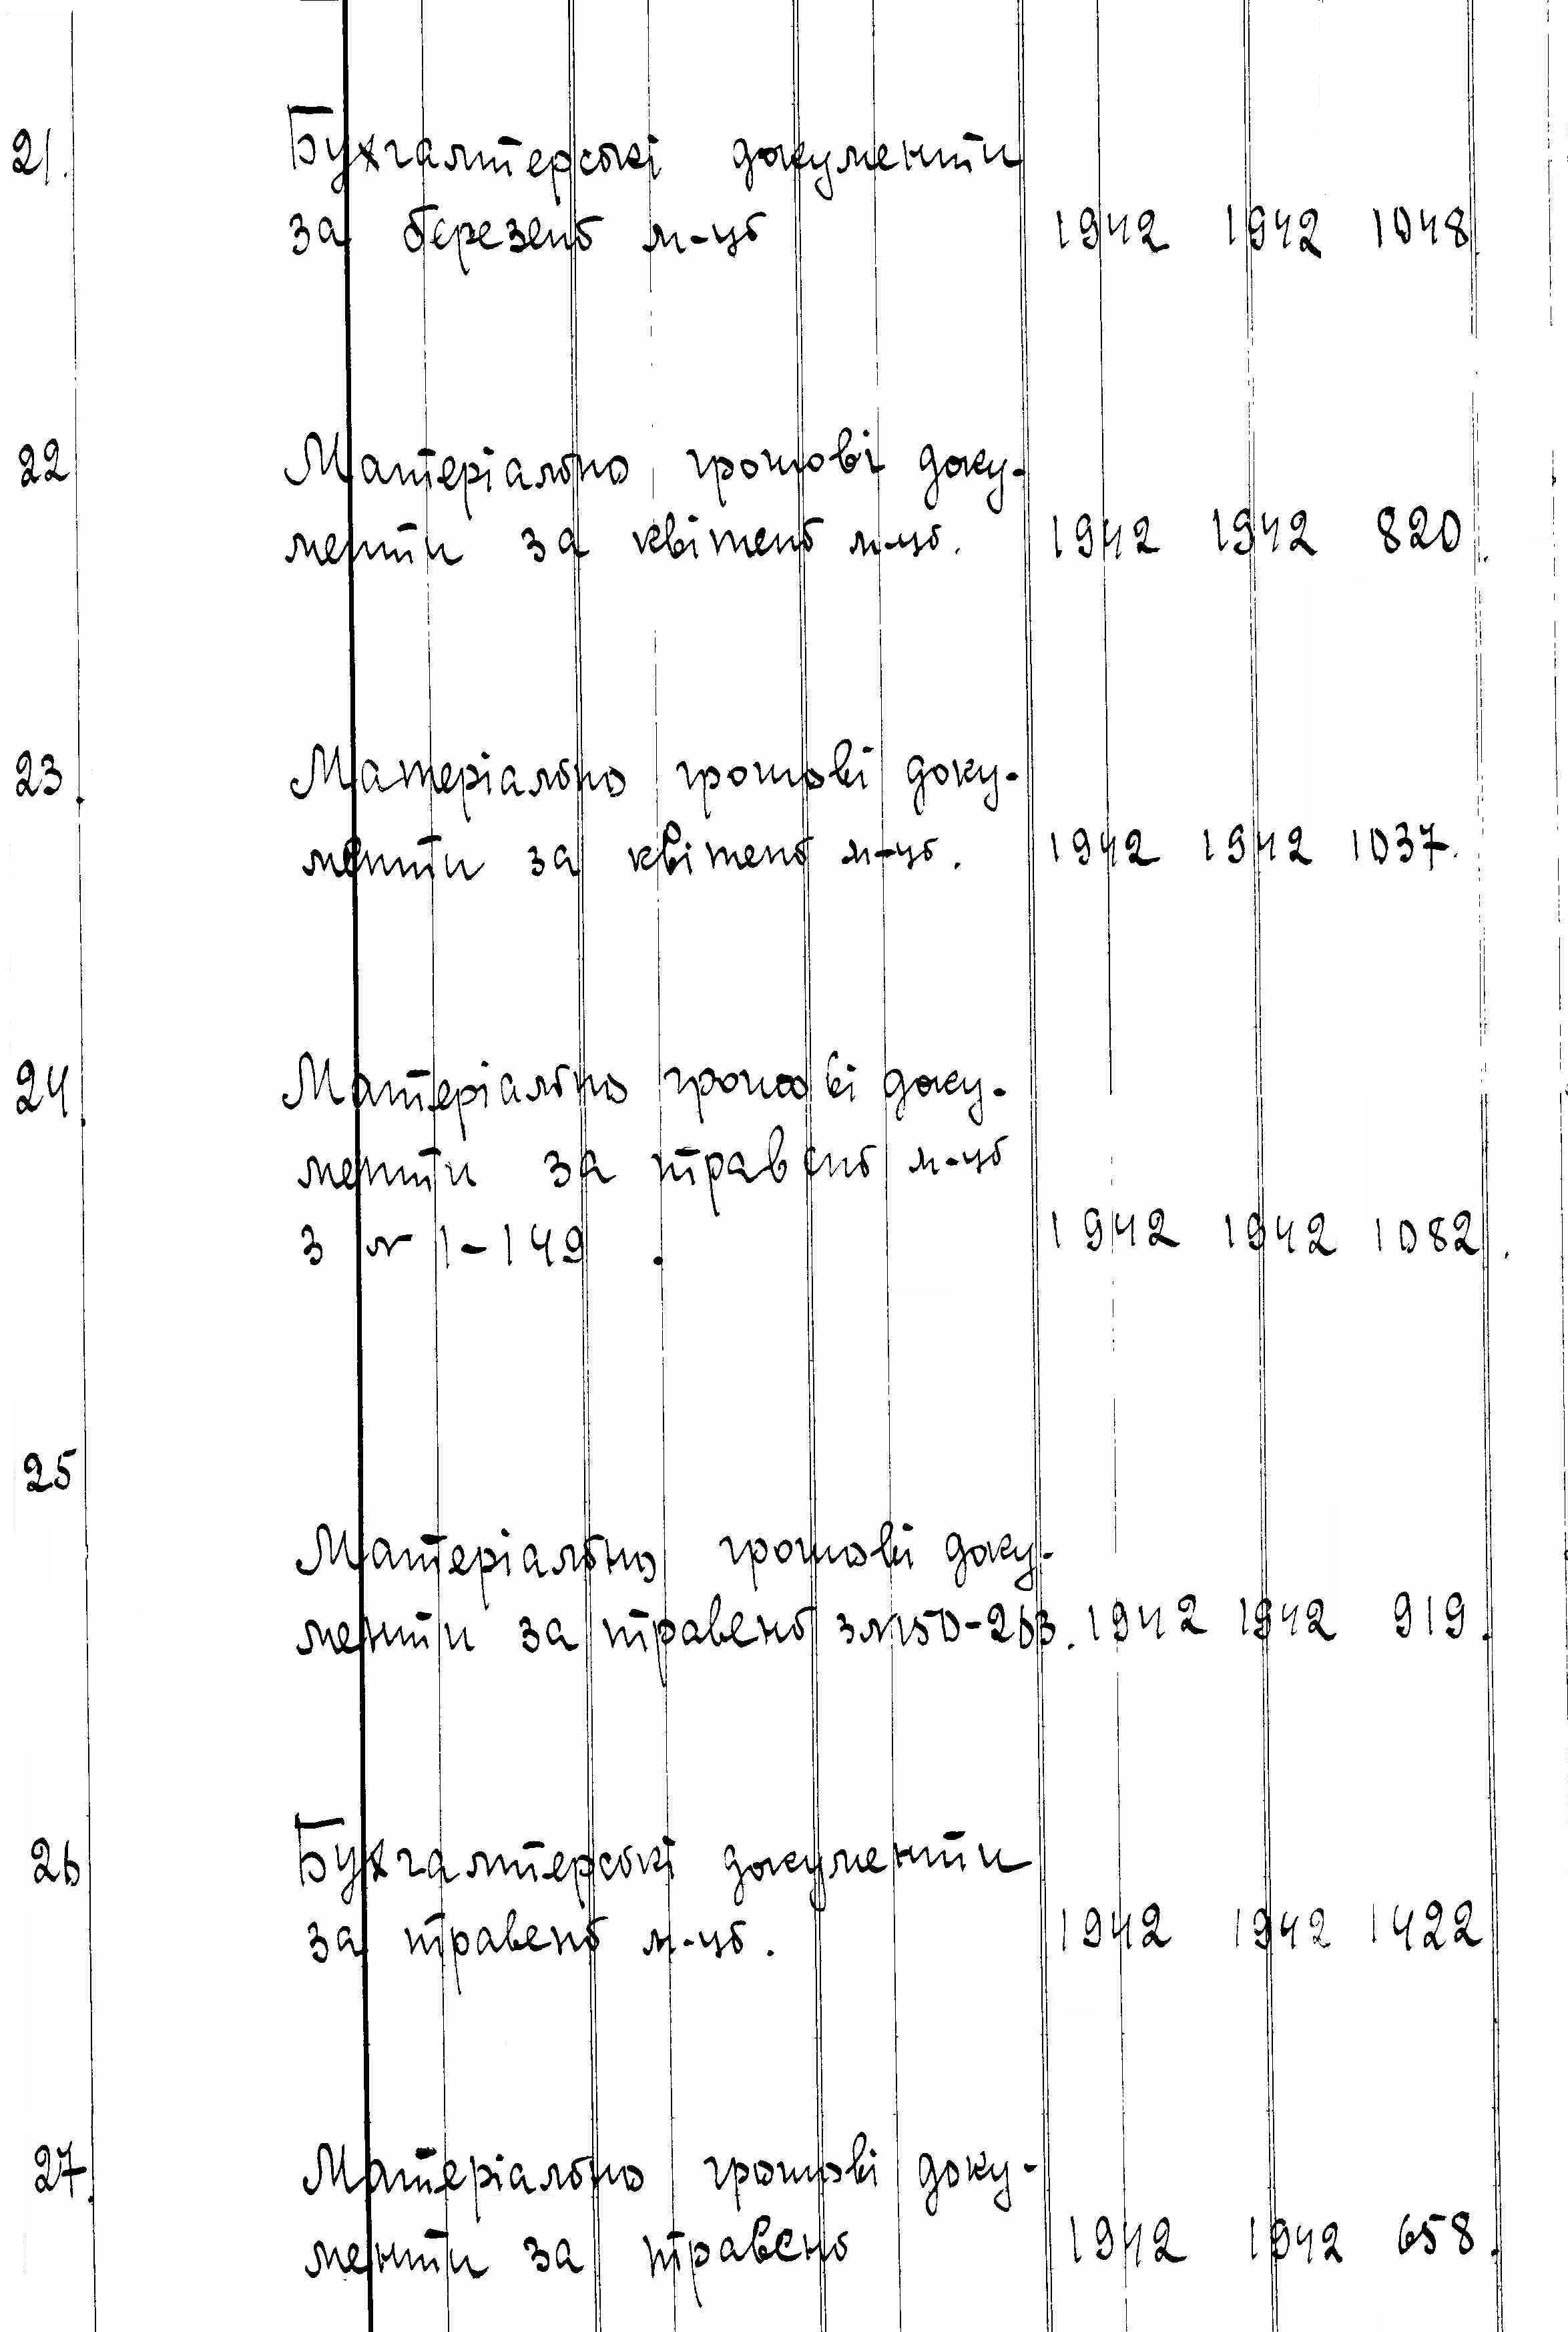 21. Бухгалтерські документи
за березень м-ць 1942 1942 1048
22 Матеріально грошові доку-
менти за квітень м-ць. 1942 1942 820
23 Матеріально грошові доку-
менти за квітень м-ць. 1942 1942 1037.
24 Матеріально грошові доку-
менти за травень м-ць
з № 1-149. 1942 1942 1082.
25
Матеріально грошові доку-
менти за травень з №150-263. 1942 1942 919.
26 Бухгалтерські документи
за травень м-ць. 1942 1942 1422
27. Матеріально грошові доку-
менти за травень 1942 1942 658.